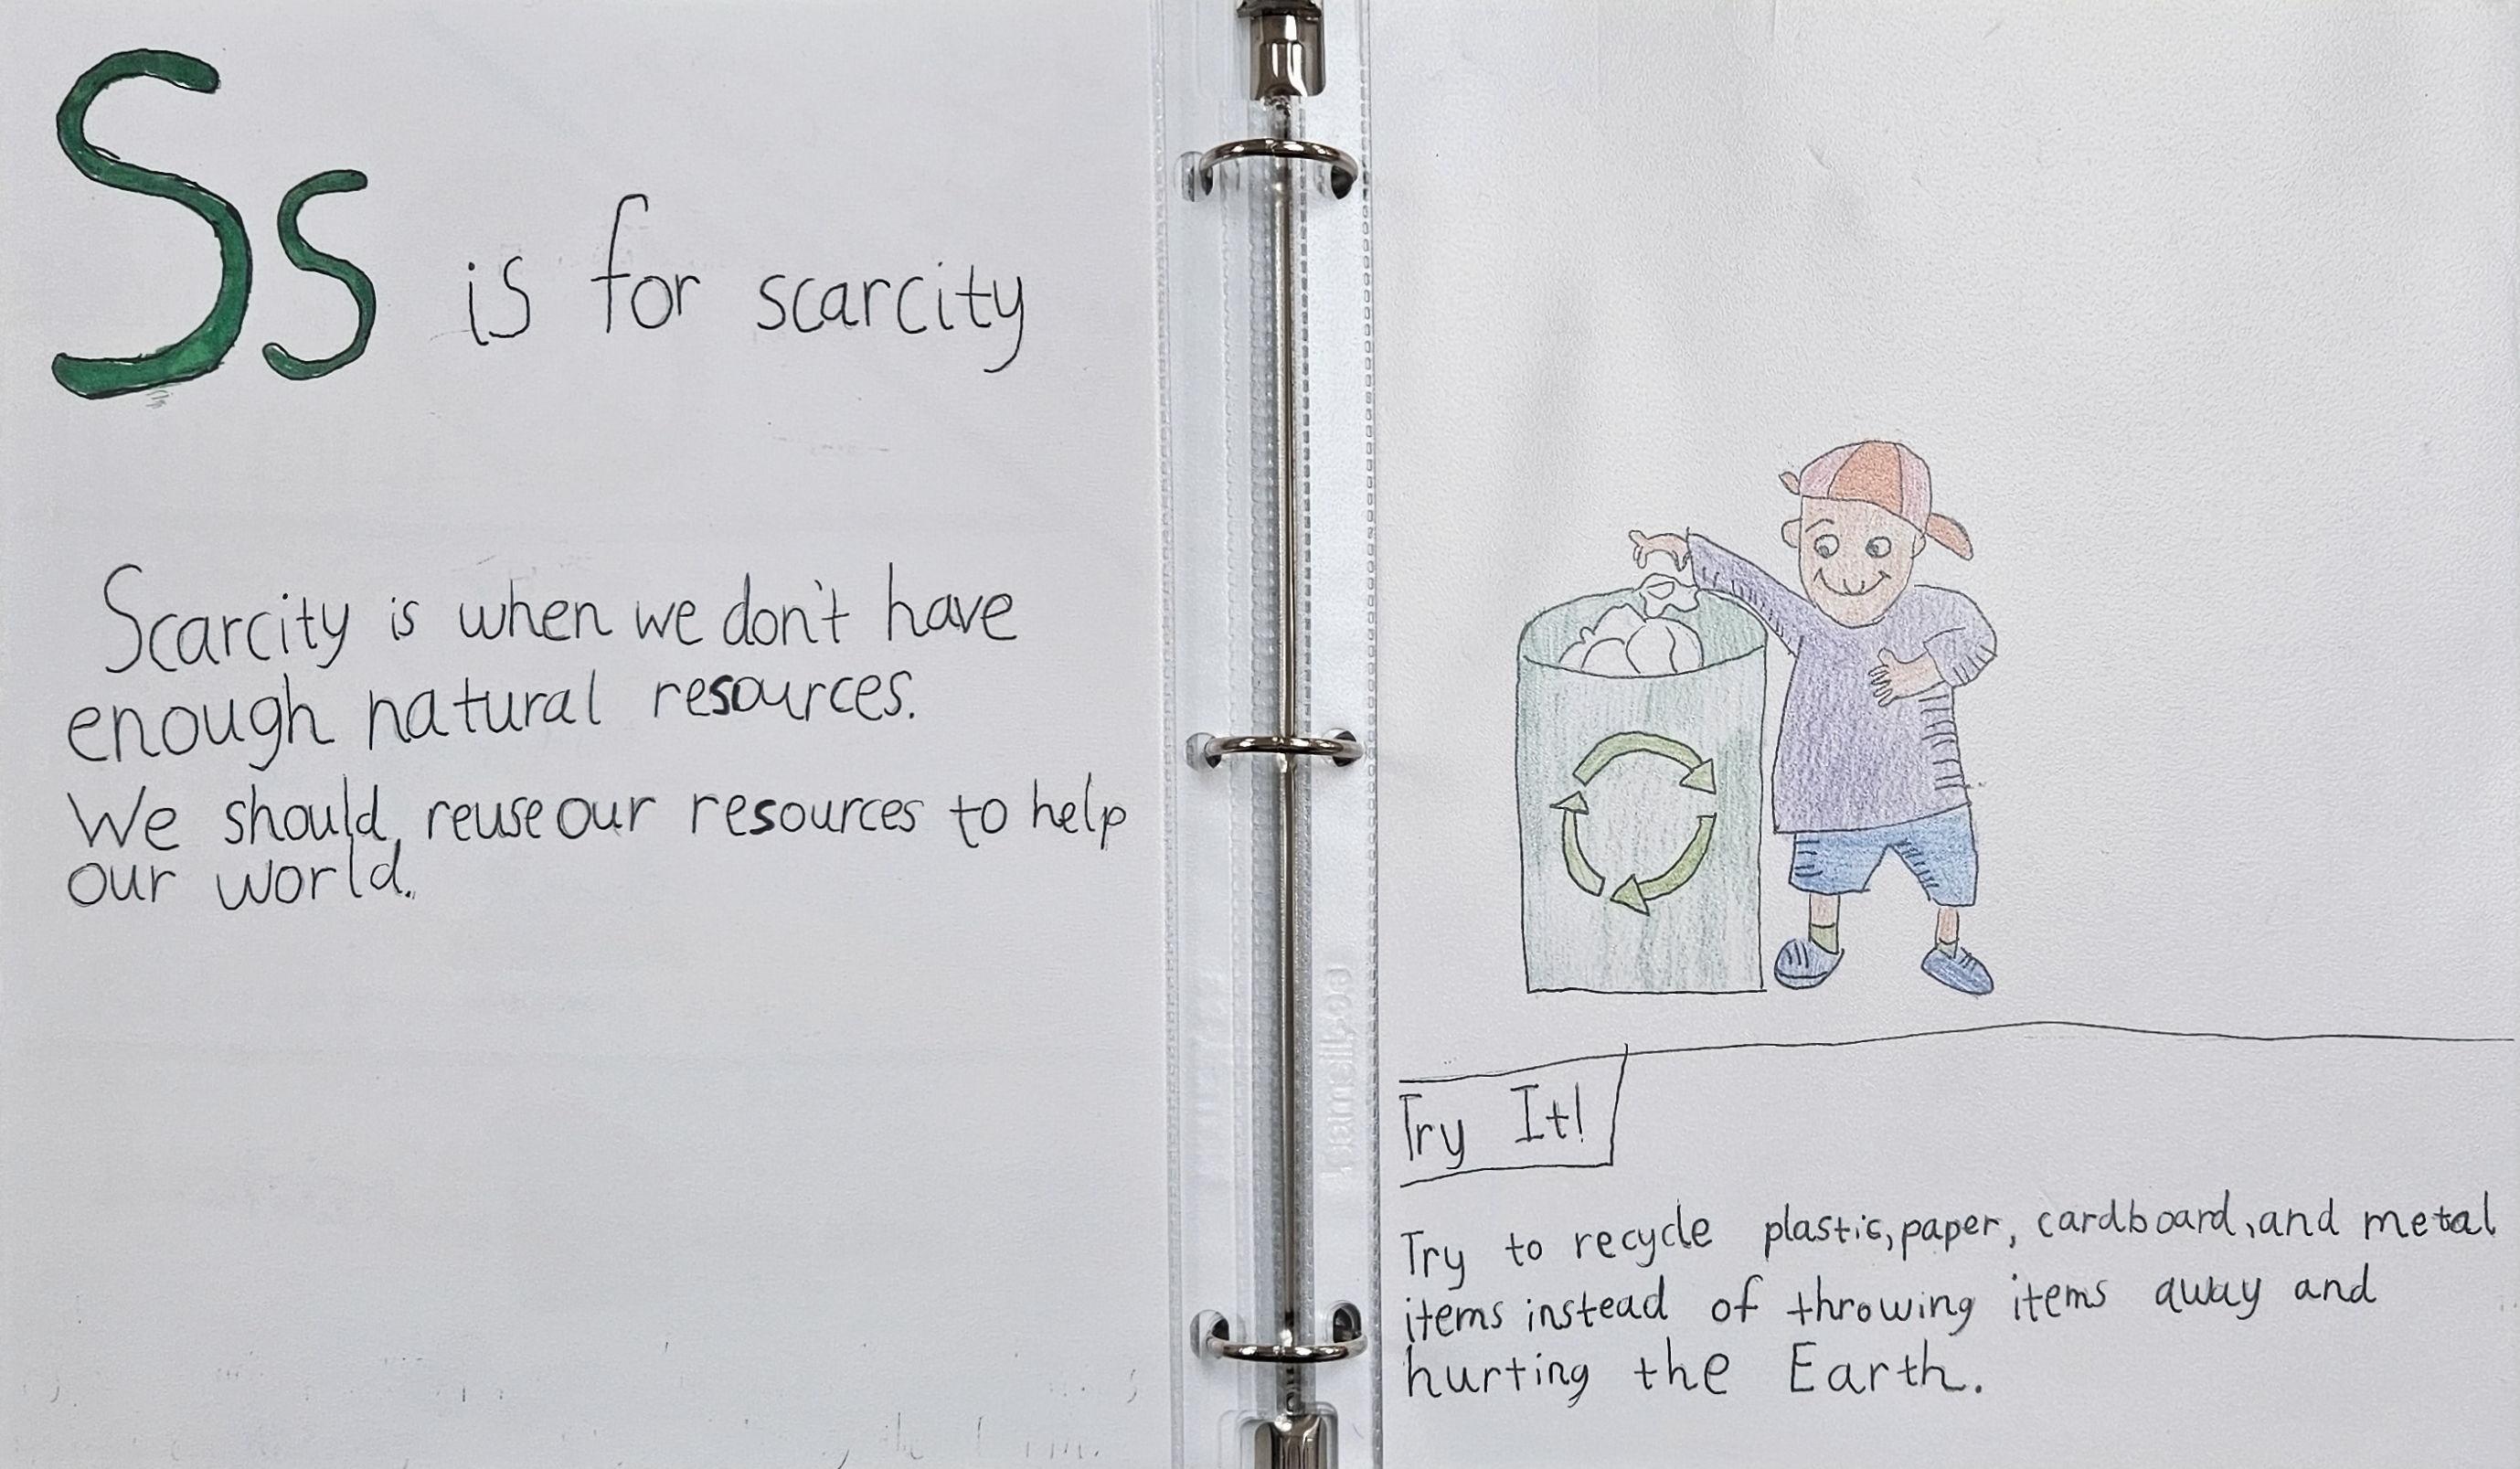 Ss is for scarcity
Scarcity is when we don't have
enough natural resources.
We should reuse our resources to help
our world.
Try It!
Try to recycle plastic, paper, cardboard, and metal
items instead of throwing items away and
hurting the Earth.